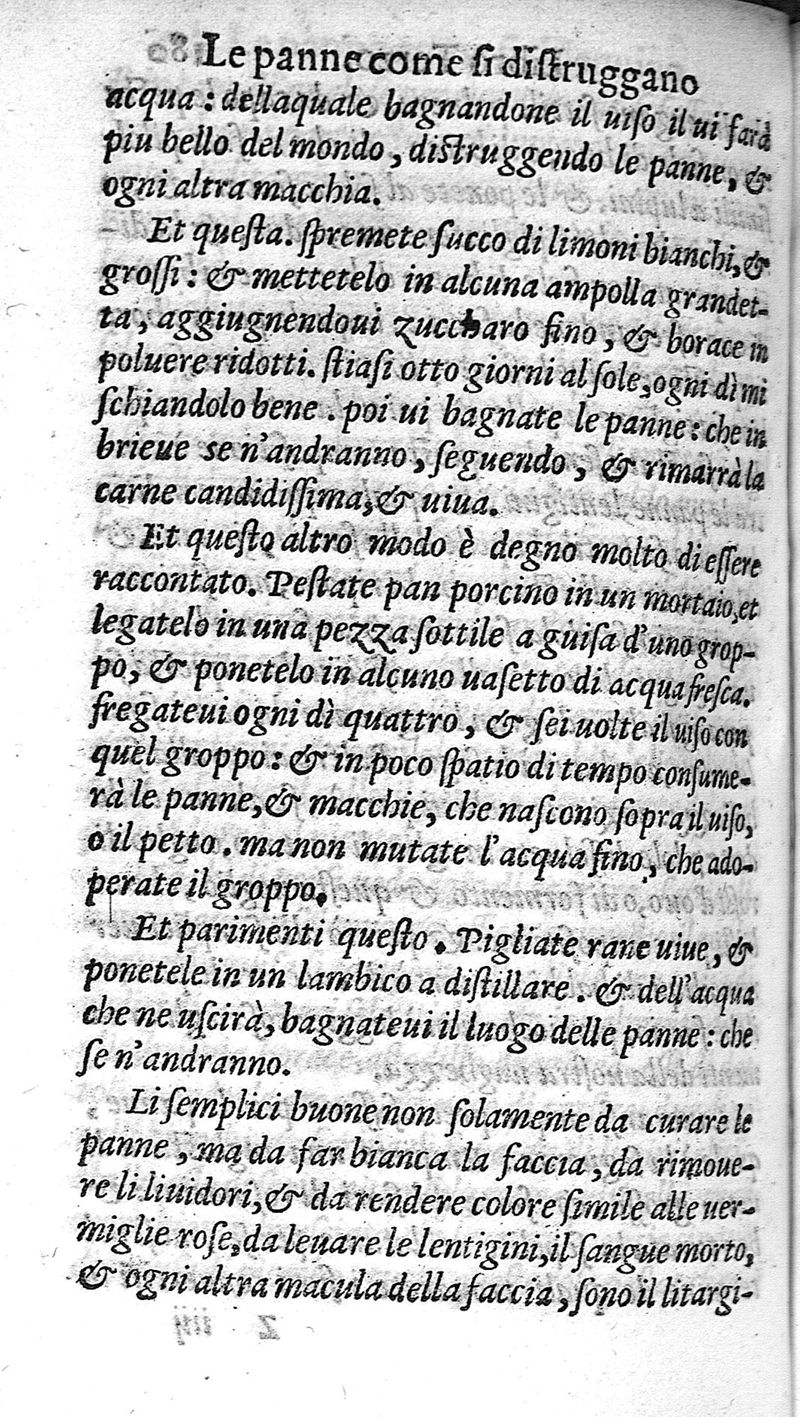 Le panne come ſi diſtruggano
acqua : dellaquale bagnandone il uiſo il ui farà
piu bello del mondo, diſtruggendo le panne, &
ogni altra macchia.
Et queſta. ſpremete ſucco di limoni bianchi, &
groſſi : & mettetelo in alcuna ampolla grandet-
ta, aggiugnendoui zuccharo fino, & borace in
poluere ridotti. ſtiaſi otto giorni al ſole, ogni dì mi
ſchiandolo bene. poi ui bagnate le panne : che in
brieue se n'andranno, ſeguendo, & rimarrà la
carne candidiſſima, & uiua.
Et queſto altro modo è degno molto di eſſere
raccontato. Peſtate pan porcino in un mortaio, et
legatelo in una pezza ſottile a guiſa d'uno grop-
po, & ponetelo in alcuno uaſetto di acqua freſca.
fregateui ogni dì quattro, & ſei uolte il uiſo con
quel groppo : & in poco ſpatio di tempo conſume-
rà le panne, & macchie, che naſcono ſopra il uiſo,
o il petto. ma non mutate l'acqua fino, che ado-
perate il groppo.
Et parimenti queſto. Pigliate rane uiue, &
ponetele in un lambico a diſtillare. & dell'acqua
che ne uſcirà, bagnateui il luogo delle panne : che
ſe n'andranno.
Li ſemplici buone non ſolamente da curare le
panne, ma da far bianca la faccia, da rimoue-
re li liuidori, & da rendere colore ſimile alle uer-
miglie roſe, da leuare le lentigini, il ſangue morto,
& ogni altra macula della faccia, ſono il litargi-